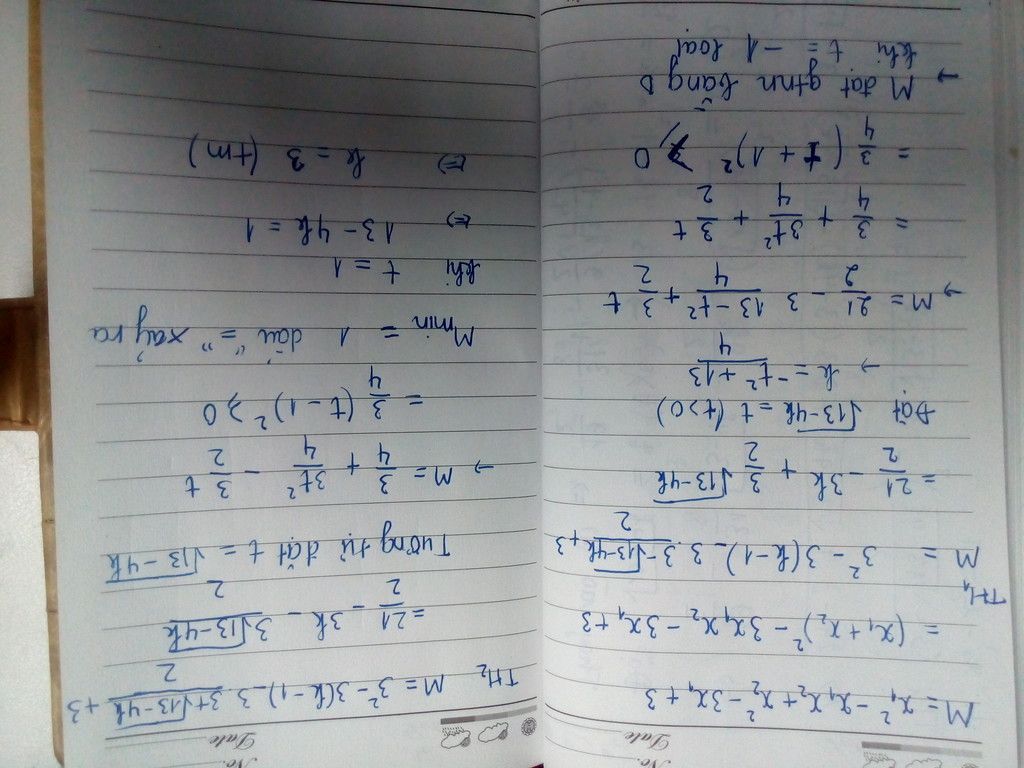 No.
Date
M = x₁² - x₁x₂ + x₂² - 3x₁ + 3
= (x₁ + x₂)² - 3x₁x₂ - 3x₁ + 3
TH₁
M = 3² - 3(k-1) - 3 \frac{3-\sqrt{13-4k}}{2} + 3
= \frac{21}{2} - 3k + \frac{3}{2} \sqrt{13-4k}
Đặt \sqrt{13-4k} = t (t>0)
→ k = \frac{-t²+13}{4}
→ M = \frac{21}{2} - 3 \frac{13-t²}{4} + \frac{3}{2} t
= \frac{3}{4} + \frac{3t²}{4} + \frac{3}{2} t
= \frac{3}{4} (t + 1)² ⩾ 0
→ M đạt gtnn bằng 0
khi t = -1 loại
No.
Date
TH₂ M = 3² - 3(k-1) - 3 \frac{3+\sqrt{13-4k}}{2} + 3
= \frac{21}{2} - 3k - \frac{3\sqrt{13-4k}}{2}
Tương tự đặt t = \sqrt{13-4k}
→ M = \frac{3}{4} + \frac{3t²}{4} - \frac{3}{2} t
= \frac{3}{4} (t-1)² ⩾ 0
Mmin = 1 dấu "=" xảy ra
khi t = 1
⇔ 13 - 4k = 1
⇔ k = 3 (tm)